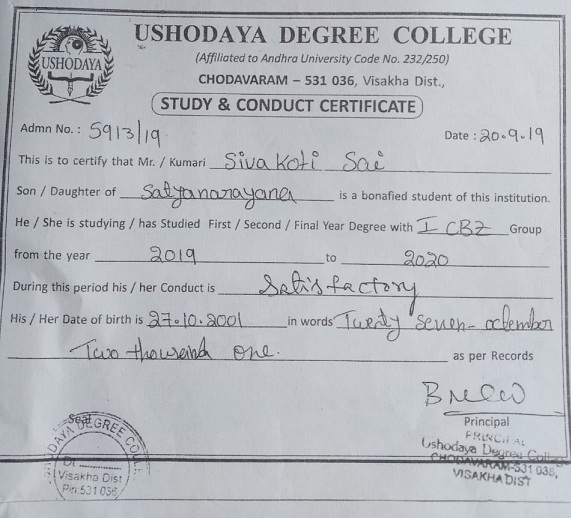 USHODAYA DEGREE COLLEGE
USHODAYA
(Affiliated to Andhra University Code No. 232/250)
CHODAVARAM – 531 036, Visakha Dist.,
STUDY & CONDUCT CERTIFICATE
Admn No. : 5913/19.
Date : 20-9-19
This is to certify that Mr. / Kumari Siva Koti Sai
Son / Daughter of Satyanarayana is a bonafied student of this institution.
He / She is studying / has Studied First / Second / Final Year Degree with I CBZ Group
from the year 2019 to 2020
During this period his / her Conduct is Satisfactory
His / Her Date of birth is 27.10.2001 in words Twenty seven - octember
Two thousand one. as per Records
Principal
PRINCIPAL
Ushodaya Degree College
CHODAVARAM-531 036,
VISAKHA DIST
Seal
DAYA DEGREE CO
Dt
Visakha Dist
Pin 531 036